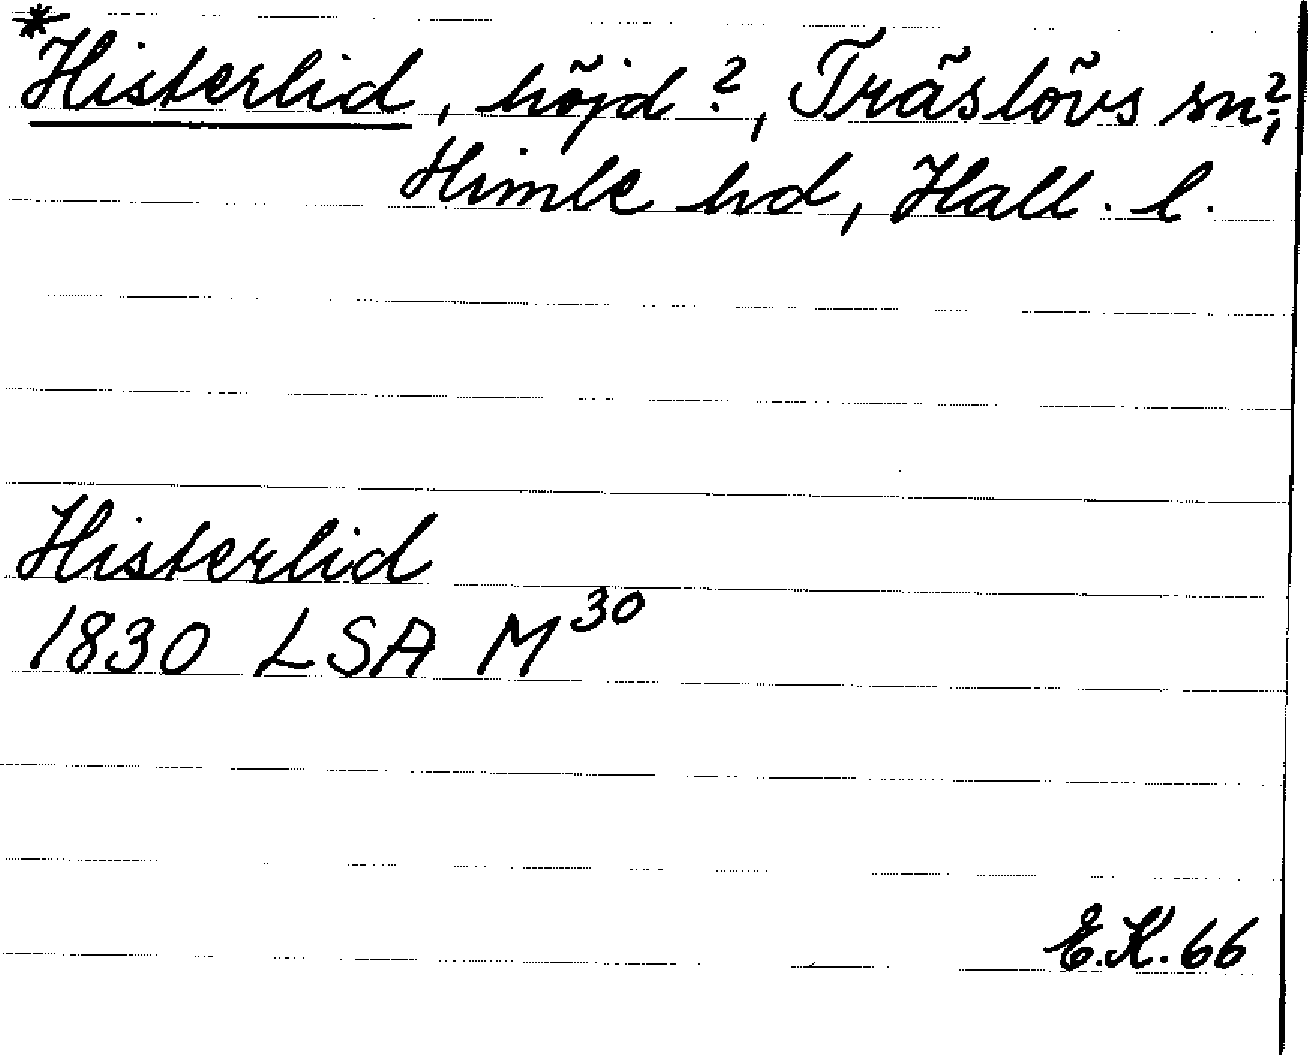 *Histerlid, höjd?, Träslövs sn?,
Himle hd, Hall. l.
Histerlid
1830 LSA M³⁰
E.K. 66